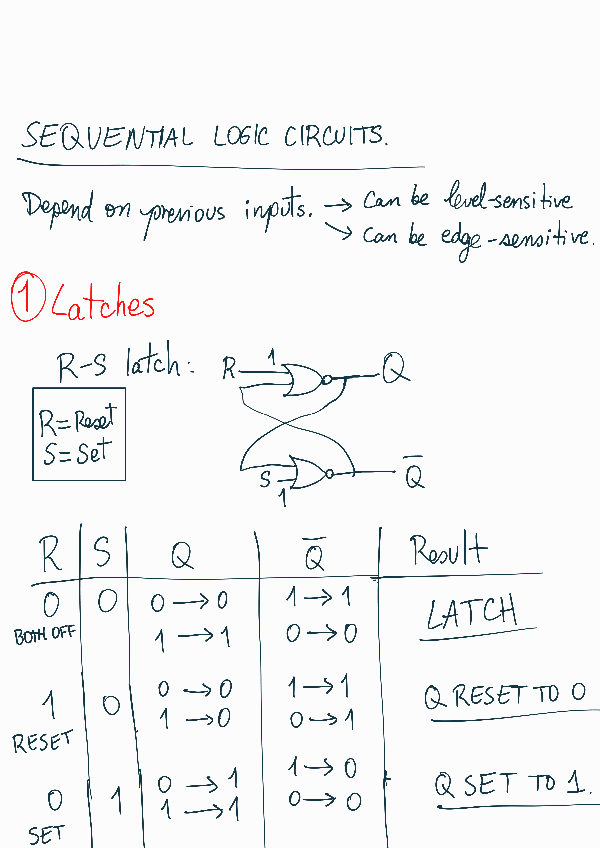 SEQUENTIAL LOGIC CIRCUITS.
Depend on previous inputs. → Can be level-sensitive
↘ Can be edge-sensitive.
① Latches
R-S latch: R 1 Q
R=Reset
S=Set
S 1 Q̅
R S Q Q̅ Result
0 0 0→0 1→1 LATCH
BOTH OFF 1→1 0→0
1 0 0→0 1→1 Q RESET TO 0
RESET 1→0 0→1
0 1 0→1 1→0 Q SET TO 1.
SET 1→1 0→0